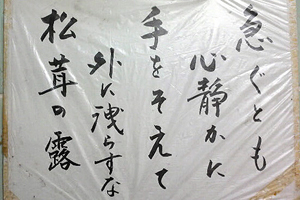 急ぐとも
心静かに
手をそえて
外に洩らすな
松茸の露